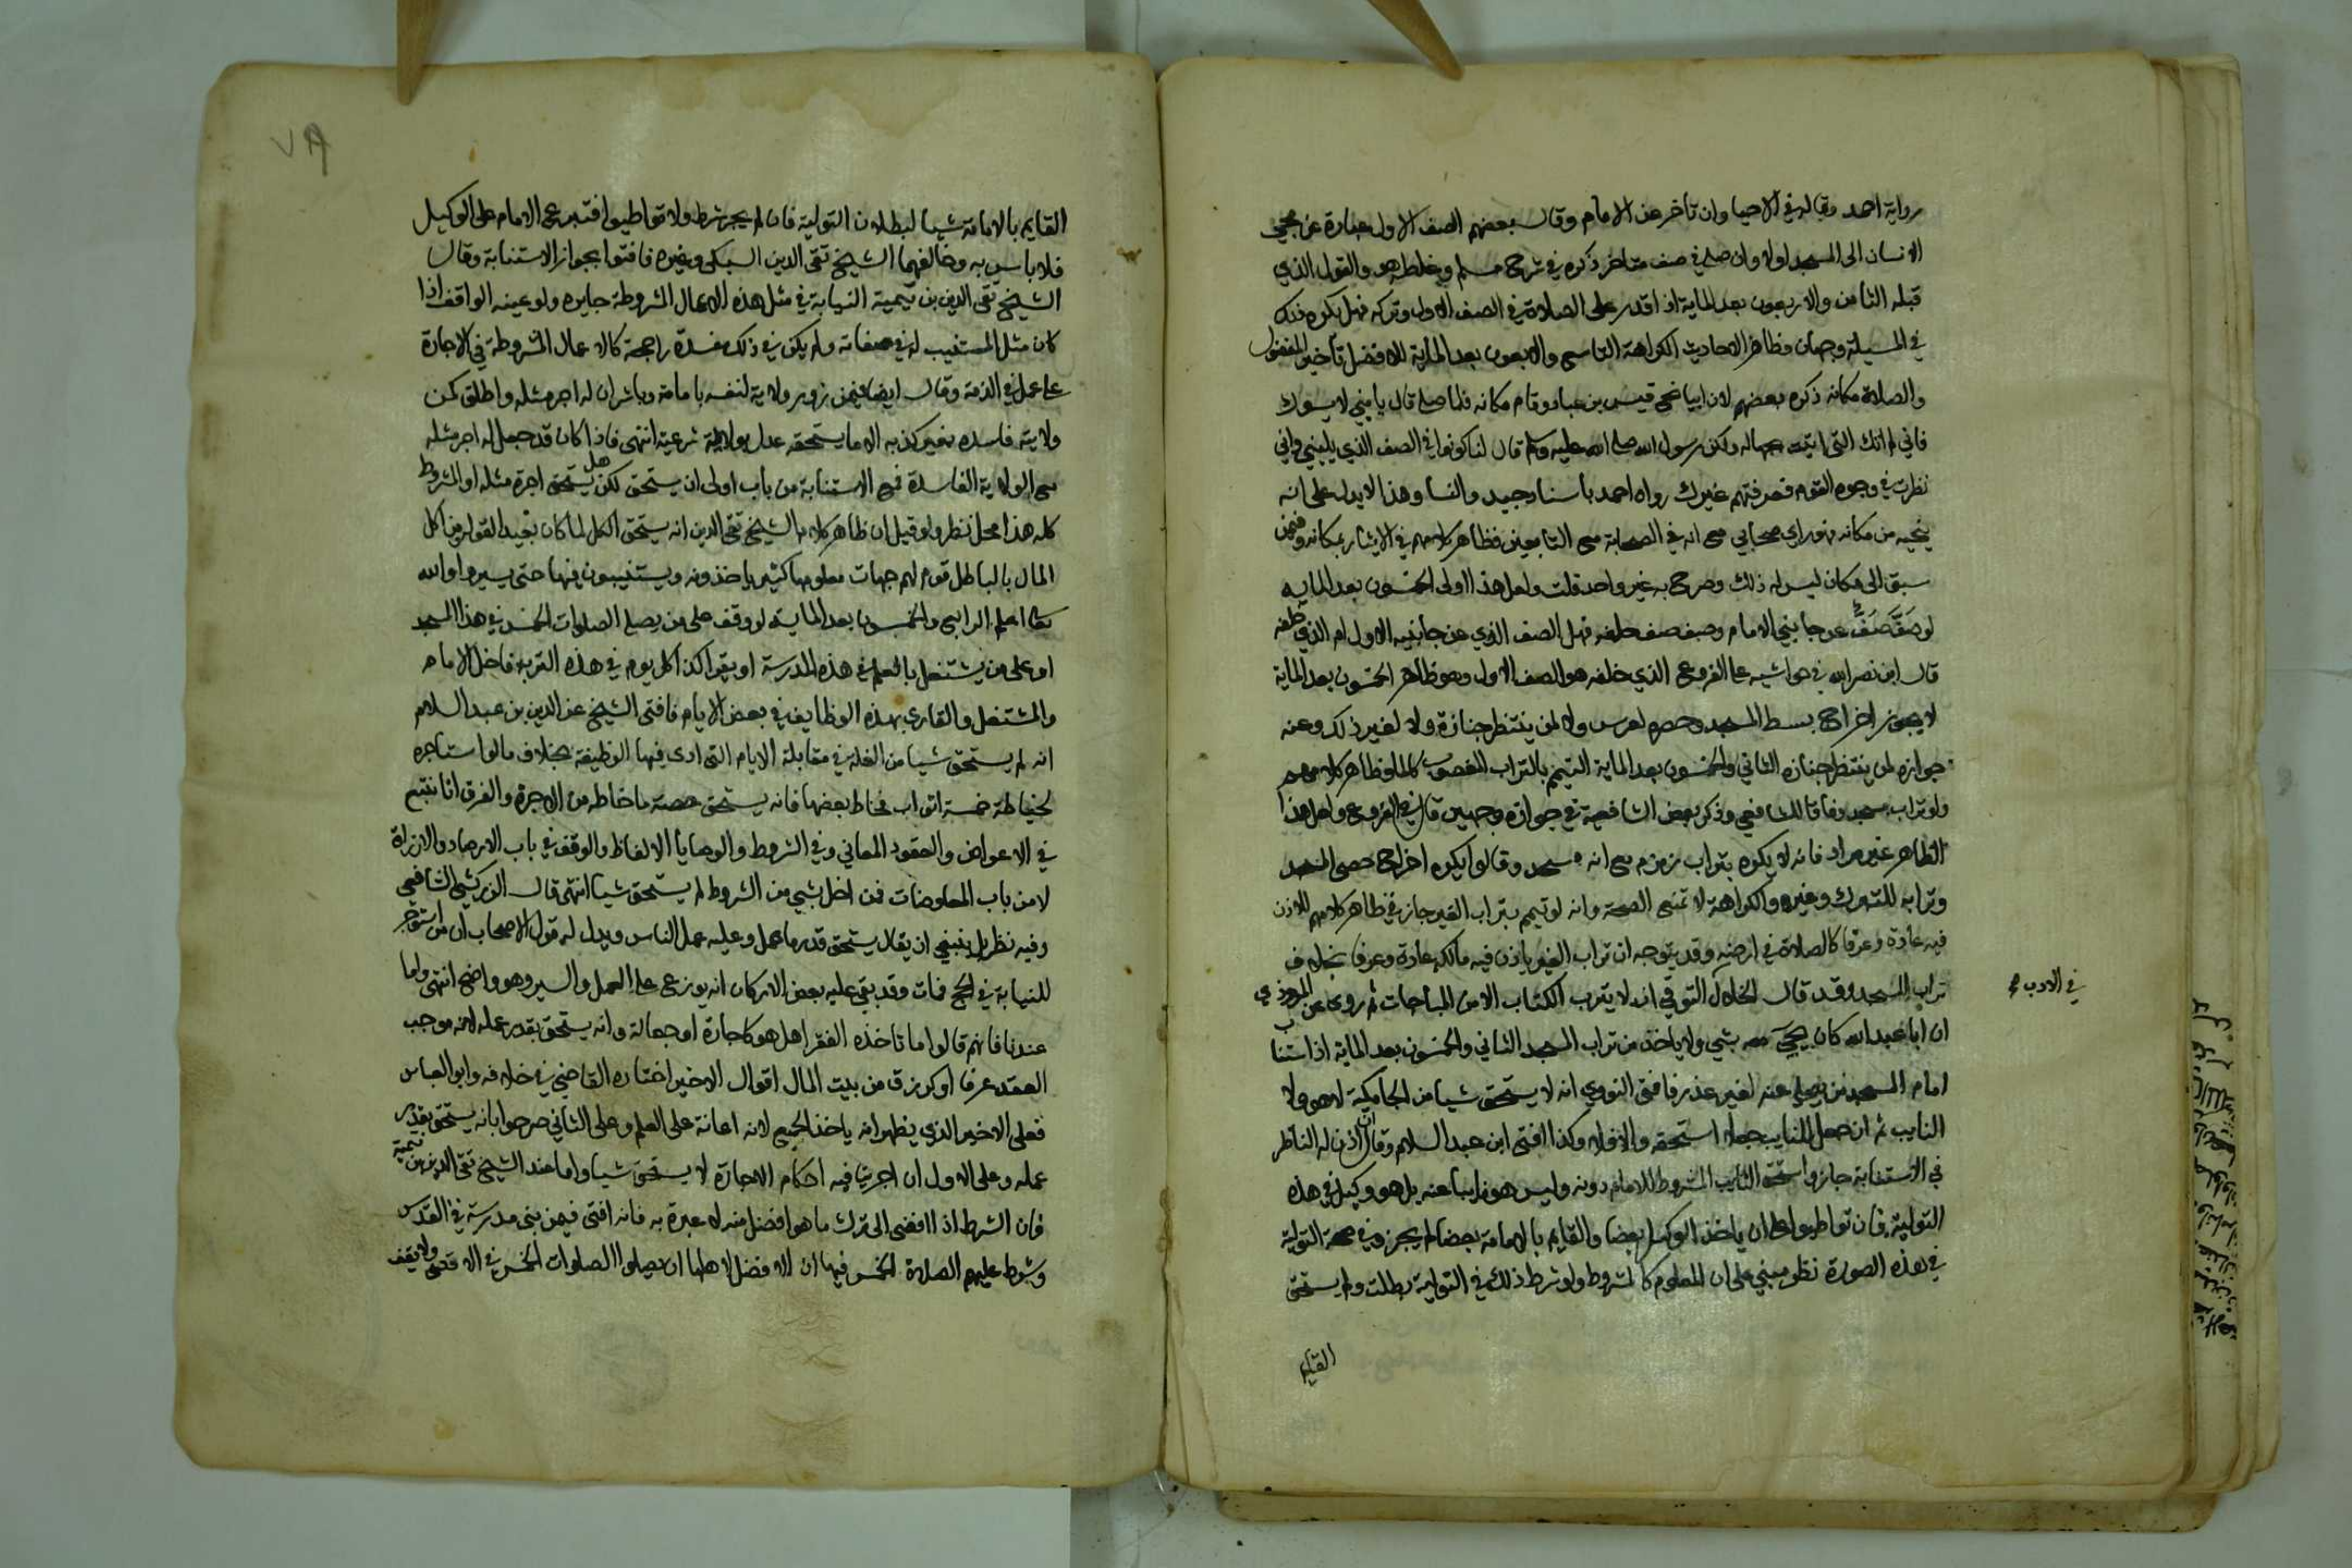 رواية احمد وقاله في الاحيا وان تاخر عن الامام وقال بعضهم الصف الاول عبارة عن مجي
الانسان الى المسجد اولا وان صلى في صف متاخر ذكره في شرح مسلم وغلطه هو والقول الذي
قبله الثامن والاربعون بعد الماية اذا قدر على الصلاة في الصف الاول وتركه فهل يكره فذكر
في المسيلة وجهان وظاهر الاحاديث الكراهة التاسع والاربعون بعد الماية للافضل تاخير المفضول
والصلاة مكانه ذكره بعضهم لان ابيا نحى قيس بن عباد وقام مكانه فلما صلى قال يا بني لا يسوك
فاني لم اتك الذي اتيت بجهالة ولكن رسول الله صلى الله عليه وسلم قال لنا كونوا في الصف الذي يليني واني
نظرت في وجوه القوم فعرفتهم غيرك رواه احمد باسناد جيد والنسا وهذا لا يدل على انه
ينحيه من مكانه فهو راي صحابي مع انه في الصحابة مع التابعين فظاهر كلامهم في الايثار بمكانه وفيمن
سبق الى مكان ليس له ذلك وصرح به غير واحد قلت ولعل هذا اولى الخمسون بعد الماية
لو صف صف عن جانبي الامام وصف صف خلفه فهل الصف الذي عن جانبيه الاول ام الذي خلفه
قال ابن نصر الله في حواشيه على الفروع الذي خلفه هو الصف الاول وهو ظاهر الخمسون بعد الماية
لا يجوز اخراج بسط المسجد وحصره لعرس ولا لمن ينتظر جنازة ولا لغير ذلك وعنه
جوازه لمن ينتظر جنازه الثاني والخمسون بعد الماية التيمم بالتراب المغصوب كالما وظاهر كلامهم
ولو تراب مسجد وفاقا للشافعي وذكر بعض الشافعية في جوازه وجهين قال في الفروع ولعل هذا
الظاهر غير مراد فانه لا يكره بتراب زمزم مع انه مسجد وقالوا يكره اخراج حصى المسجد
وترابه للتبرك وغيره والكراهة لا تمنع الصحة وانه لو تيمم بتراب الغير جاز في ظاهر كلامهم للاذن
فيه عادة وعرفا كالصلاة في ارضه وقد يتوجه ان تراب الغير ياذن فيه مالكه عادة وعرفا بخلاف
تراب المسجد وقد قال الخلال التوقي ان لا يترب الكتاب الا من المباحات ثم روى عن المروذي
في الادب
ان ابا عبد الله كان يجي معه بشي ولا ياخذ من تراب المسجد الثاني والخمسون بعد الماية اذا استناب
امام المسجد من يصلي عنه لغير عذر فافتى النووي انه لا يستحق شيا من الجامكية لا هو ولا
النايب ثم ان جعل للنايب جعلا استحقه والا فلا وكذا افتى ابن عبد السلام وقال ان اذن له الناظر
في الاستنابة جاز واستحق النايب المشروط للامام دونه وليس هو نايبا عنه بل هو وكيل في هذه
التولية فان تواطيوا على ان ياخذ الوكيل بعضا والقايم بالامامة بعضا لم يجز وفي صحة التولية
في هذه الصورة نظر مبني على ان المعلوم كالمشروط ولو شرط ذلك في التولية بطلت ولم يستحق
القايم
القايم بالامامة شيا لبطلان التولية فان لم يجر شرط ولا تواطيوا فتبرع الامام على الوكيل
فلا باس به وخالفهما الشيخ تقي الدين السبكي وغيره فافتوا بجواز الاستنابة وقال
الشيخ تقي الدين بن تيمية النيابة في مثل هذه الاعمال المشروطة جايزه ولو عينه الواقف اذا
كان مثل المستنيب له في صفاته ولم يكن في ذلك مفسدة راجحة كالاعمال المشروطة في الاجارة
على عمل في الذمة وقال ايضا فيمن زور ولاية لنفسه بامامة وباشر ان له اجر مثله واطلق كمن
ولايته فاسده بغير كذبه الا ما يستحقه عدل بولاية شرعية انتهى فاذا كان قد جعل له اجر مثله
مع الولاية الفاسدة فمع الاستنابة من باب اولى ان يستحق لكن هل يستحق اجرة مثله او المشروط
كله هذا محل نظر ولو قيل ان ظاهر كلام الشيخ تقي الدين انه يستحق الكل لما كان بعيد القول من اكل
المال بالباطل قوم لهم جهات معلومها كثير ياخذونه ويستنيبون فيها حتى يسيروا والله
تعالى اعلم الرابع والخمسون بعد الماية لو وقف على من يصلي الصلوات الخمس في هذا المسجد
او على من يشتغل بالعلم في هذه المدرسة او يقرا كذا كل يوم في هذه التربه فاخل الامام
والمشتغل والقاري بهذه الوظايف في بعض الايام فافتى الشيخ عز الدين بن عبد السلام
انه لم يستحق شيا من الغلة في مقابلة الايام التي ادى فيها الوظيفة بخلاف ما لو استاجره
لخياطة خمسة اثواب فخاط بعضها فانه يستحق حصة ما خاطه من الاجرة والفرق انا نتبع
في الاعواض والعقود المعاني وفي الشروط والوصايا الالفاظ والوقف في باب الارصاد والارزاق
لا من باب المعاوضات فمن اخل بشي من الشروط لم يستحق شيا انتهى قال الزركشي الشافعي
وفيه نظر بل ينبغي ان يقال يستحق قدر ما عمل وعليه عمل الناس ويدل له قول الاصحاب ان من استوجر
للنيابة في الحج فمات وقد بقي عليه بعض الاركان انه يوزع على العمل والسير وهو واضح انتهى واما
عندنا فانهم قالوا ما تاخذه الفقها هل هو كاجارة او جعالة وانه يستحق بقدر عمله لانه موجب
العقد عرفا او كرزق من بيت المال اقوال الاخير اختاره القاضي في خلافه وابو العباس
فعلى الاخير الذي يظهر انه ياخذ الجميع لانه اعانة على العلم وعلى الثاني صرحوا بانه يستحق بقدر
عمله وعلى الاول ان اجرينا فيه احكام الاجارة لا يستحق شيا واما عند الشيخ تقي الدين بن تيمية
فان الشرط اذا افضى الى ترك ما هو افضل منه لا عبرة به فانه افتى فيمن بنى مدرسة في القدس
وشرط عليهم الصلاة الخمس فيها ان الافضل لاهلها ان يصلوا الصلوات الخمس في الاقصى ولا يقف